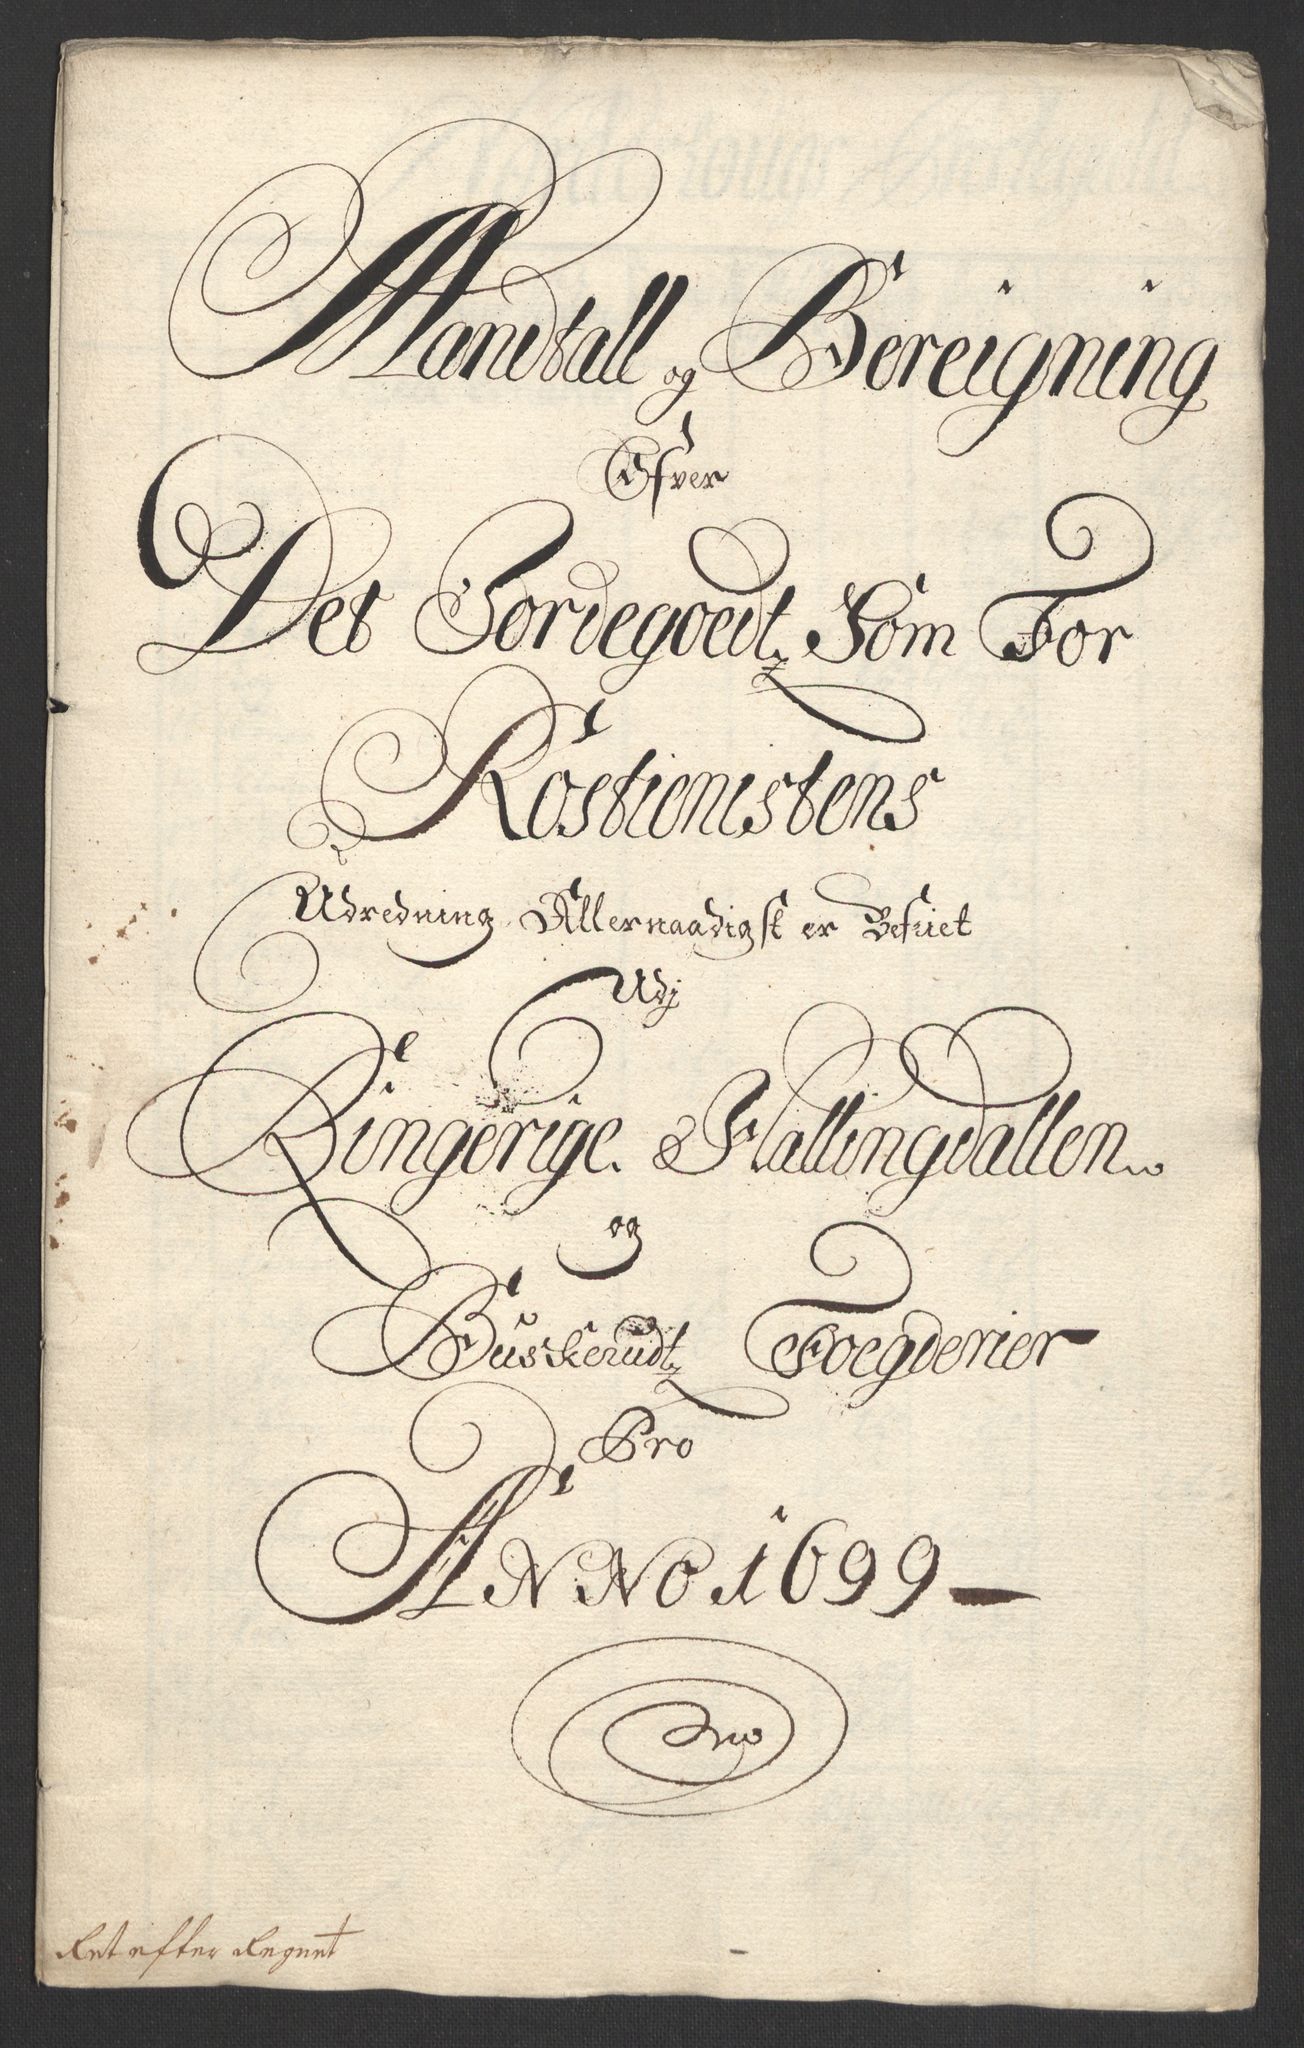 Mandtall og Bereigning
Ofver
Det Jordegoedtz Som For
Rostienistens
Udredning Allernaadigst er Befriet
Udj
Ringerige & Hallingdallen
og
Buskerudtz Foegderier
Pro
ANNO 1699
Ret efter Regnet